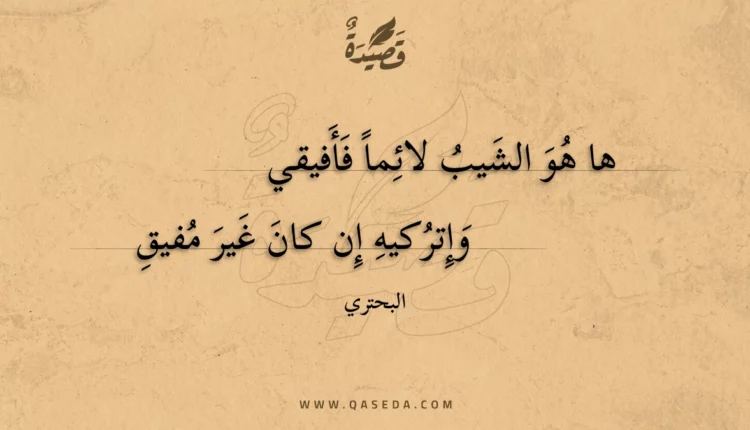 قَصِيْدَةٌ
ها هُوَ الشَيبُ لائِماً فَأَفيقي
وَإِترُكيهِ إِن كانَ غَيرَ مُفيقِ
البحتري
WWW.QASEDA.COM